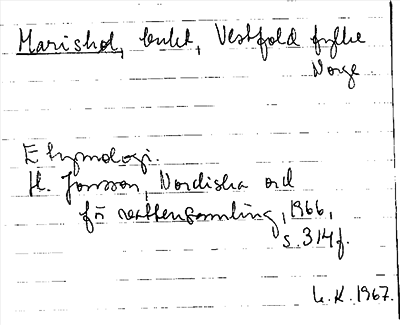 Mariskol, bukt, Vestfold fylke
Norge.
Etymologi.
H. Jonsson, Nordiska ord
för vattensamling, 1966,
s. 314f.
L.K. 1967.